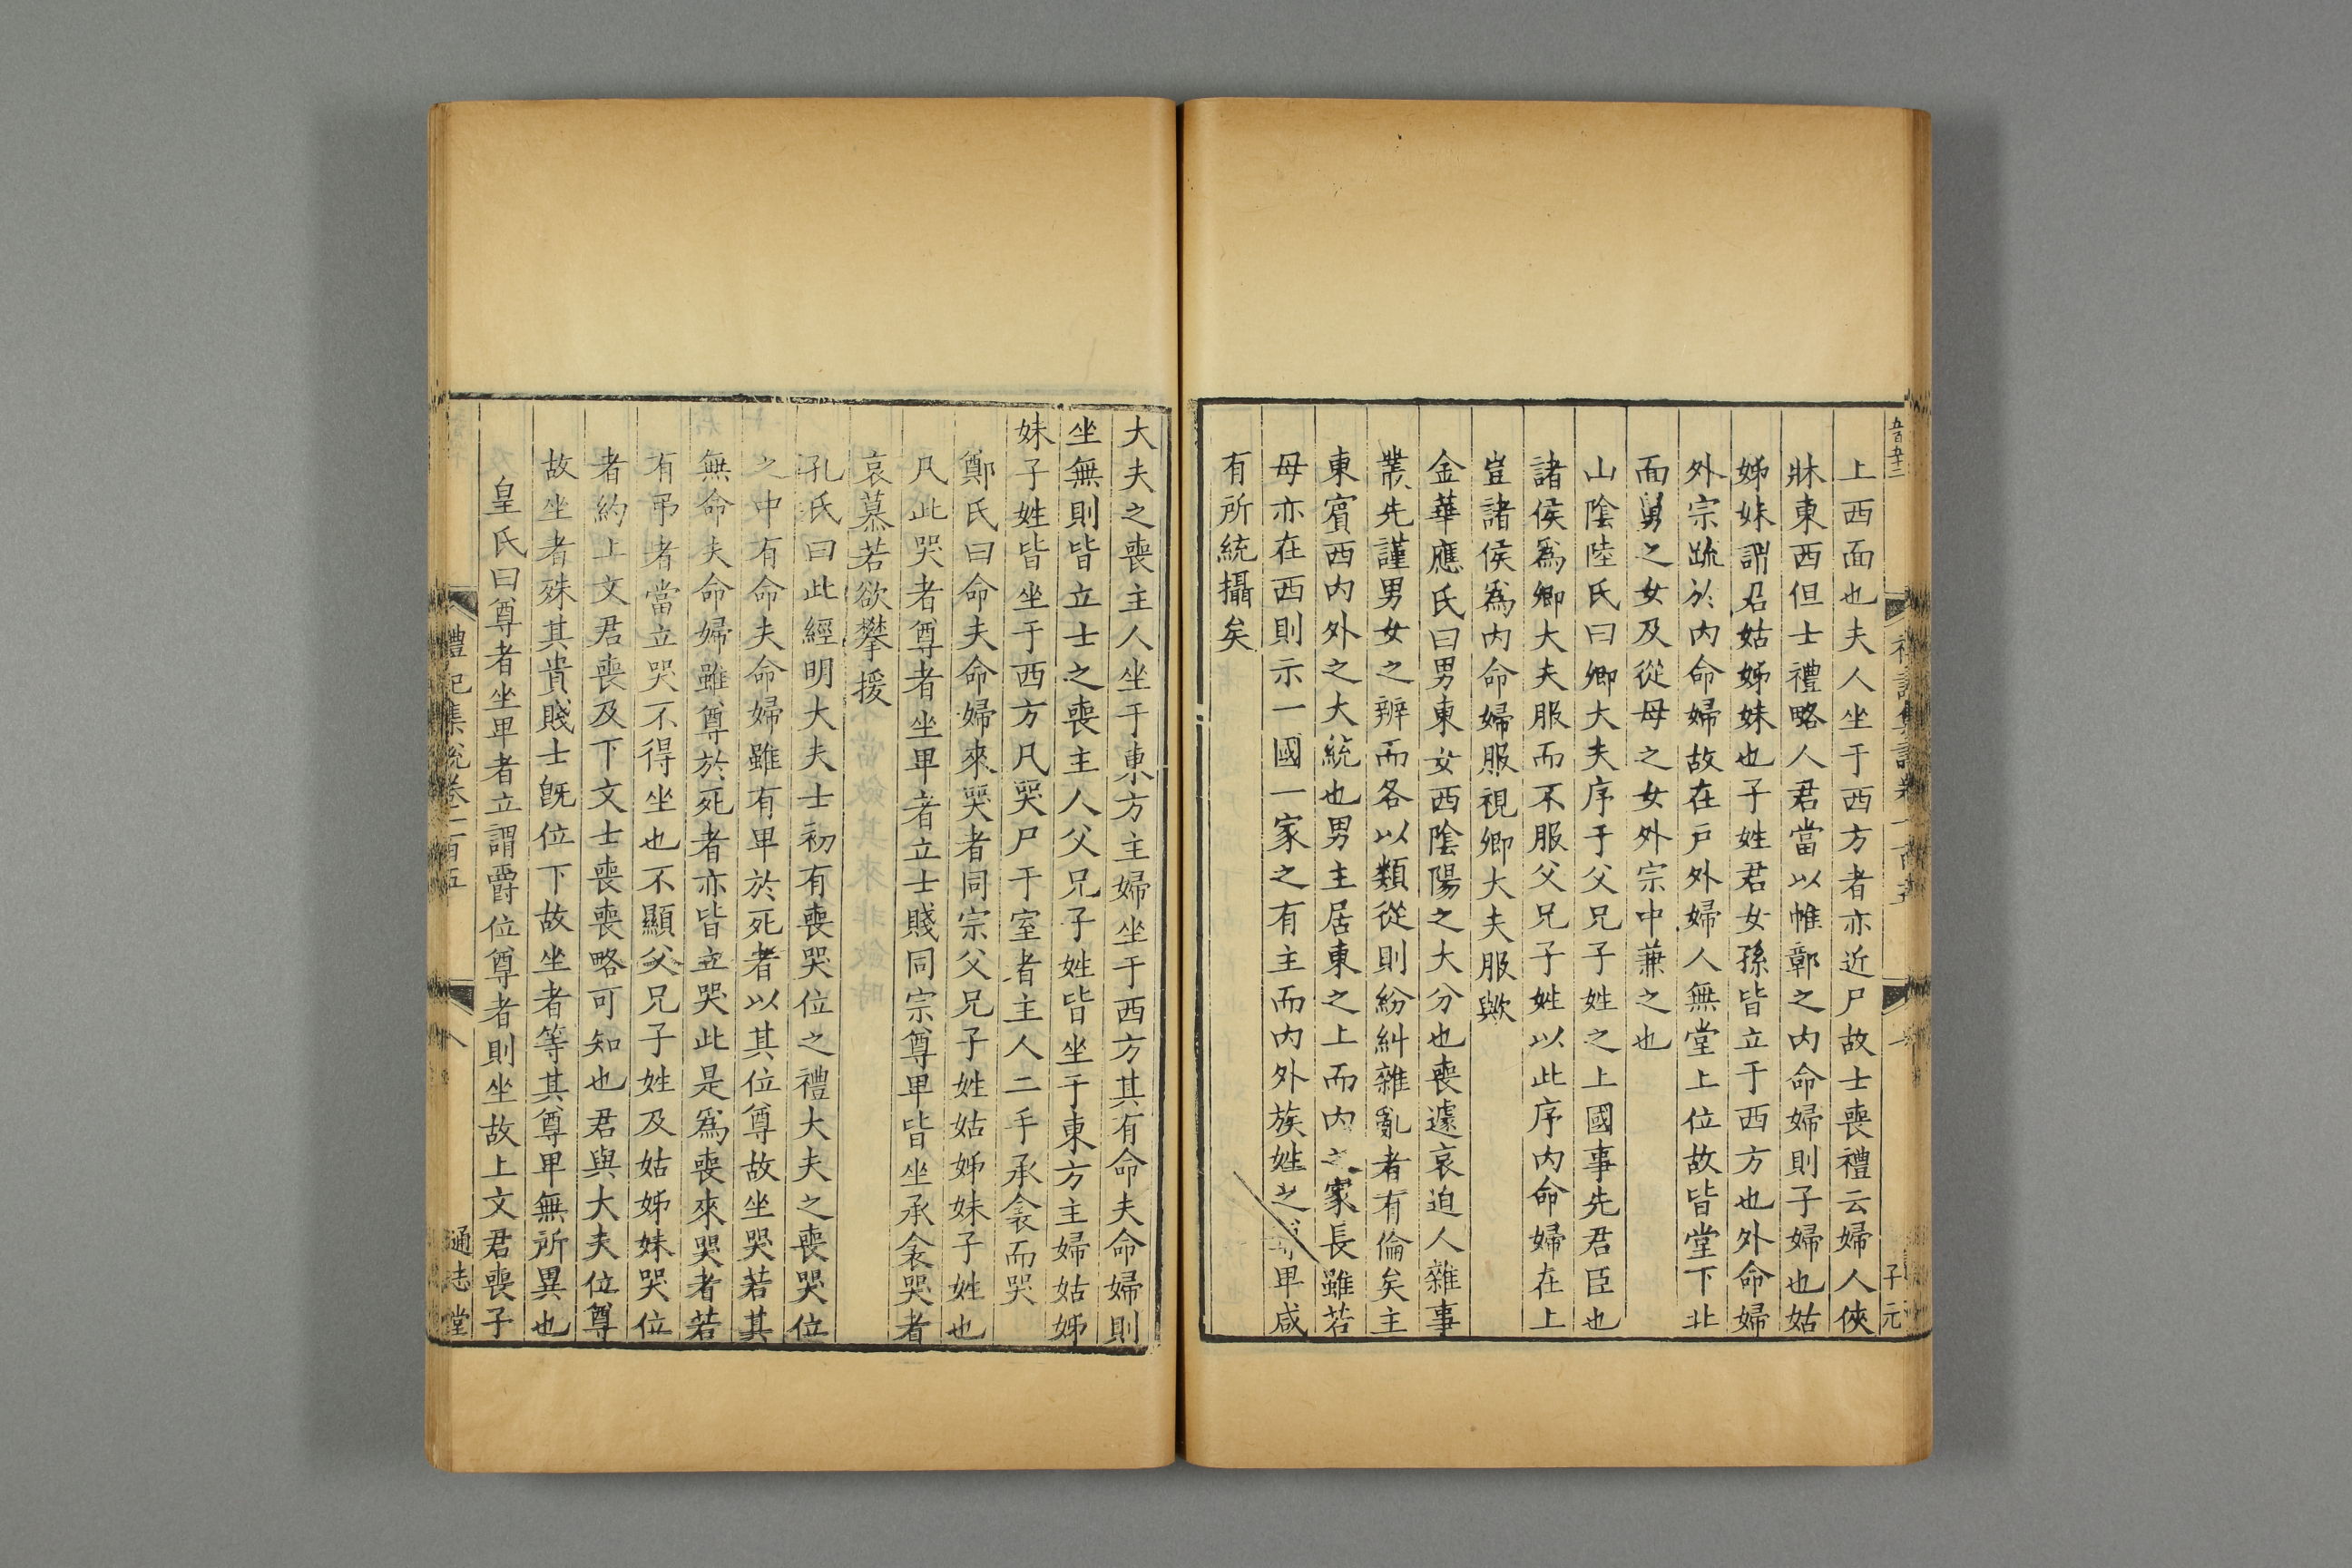 上西面也夫人坐于西方者亦近尸故士喪禮云婦人俠
牀東西但士禮略人君當以帷鄣之内命婦則子婦也姑
姊妹謂君姑姊妹也子姓君女孫皆立于西方也外命婦
外宗疏於内命婦故在戶外婦人無堂上位故皆堂下北
面舅之女及從母之女外宗中兼之也
山陰陸氏曰卿大夫序于父兄子姓之上國事先君臣也
諸侯爲卿大夫服而不服父兄子姓以此序内命婦在上
豈諸侯爲内命婦服視卿大夫服歟
金華應氏曰男東女西陰陽之大分也喪遽哀迫人雜事
叢先謹男女之辨而各以類從則紛糾雜亂者有倫矣主
東賓西内外之大統也男主居東之上而内之家長雖若
母亦在西則示一國一家之有主而内外族姓之卑咸
有所統攝矣
子元
大夫之喪主人坐于東方主婦坐于西方其有命夫命婦則
坐無則皆立士之喪主人父兄子姓皆坐于東方主婦姑姊
妹子姓皆坐于西方凡哭尸于室者主人二手承衾而哭
鄭氏曰命夫命婦來哭者同宗父兄子姓姑姊妹子姓也
凡此哭者尊者坐卑者立士賤同宗尊卑皆坐承衾哭者
哀慕若欲攀援
孔氏曰此經明大夫士初有喪哭位之禮大夫之喪哭位
之中有命夫命婦雖有卑於死者以其位尊故坐哭若其
無命夫命婦雖尊於死者亦皆立哭此是爲喪來哭者若
有弔者當立哭不得坐也不顯父兄子姓及姑姊妹哭位
者約上文君喪及下文士喪喪略可知也君與大夫位尊
故坐者殊其貴賤士旣位下故坐者等其尊卑無所異也
皇氏曰尊者坐卑者立謂爵位尊者則坐故上文君喪子
禮記集說卷一百五
八
通志堂